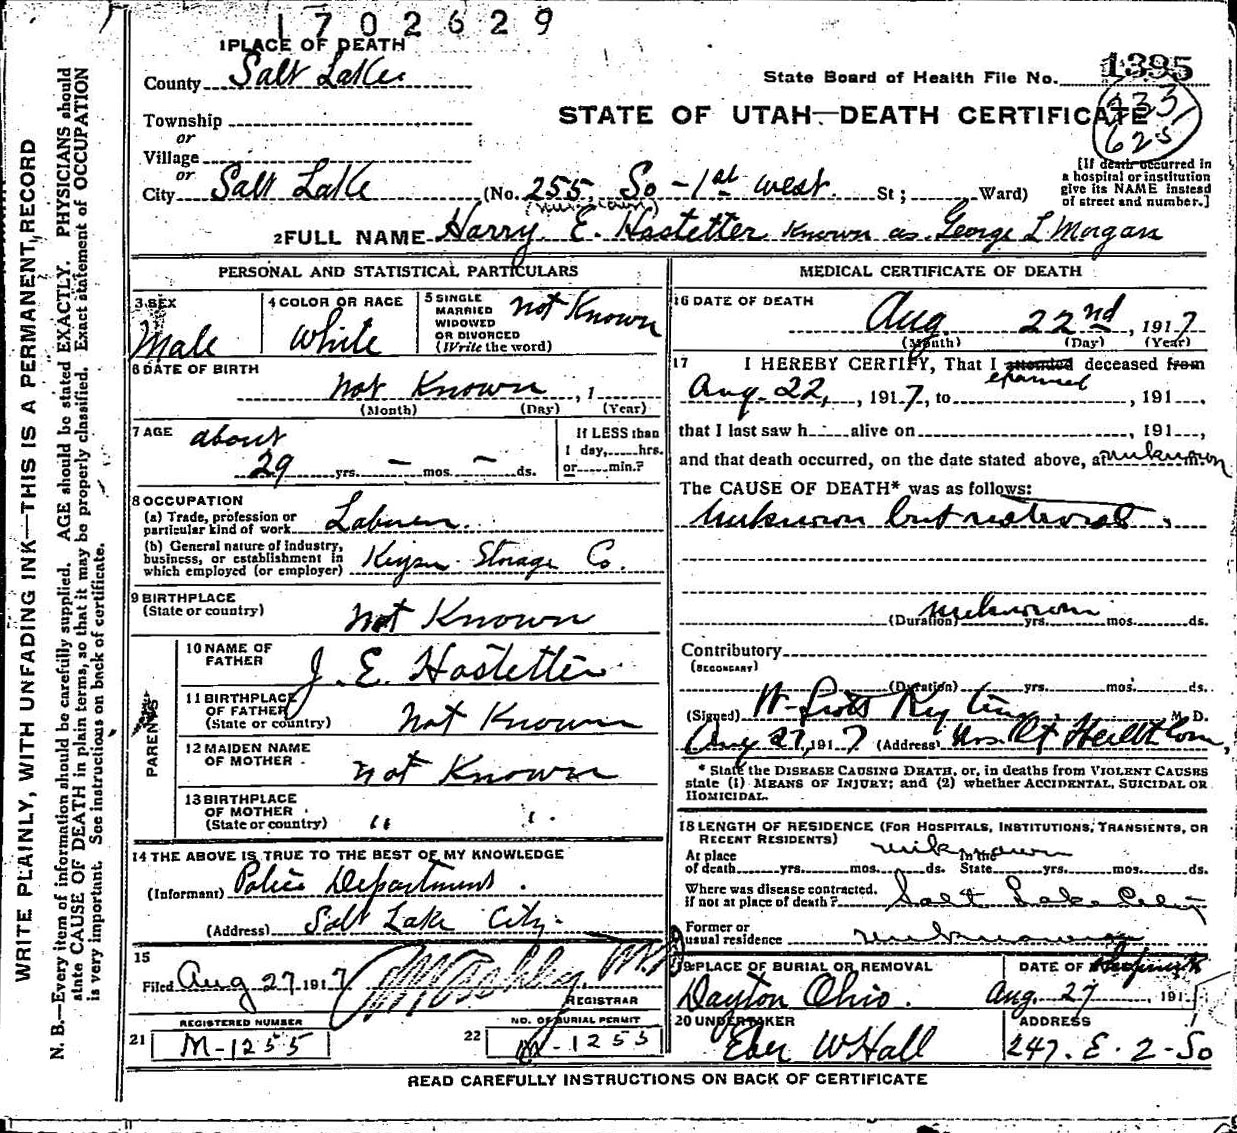 1702629
1 PLACE OF DEATH
County Salt Lake
State Board of Health File No. 1395
Township
or
STATE OF UTAH—DEATH CERTIFICATE
Village
or
City Salt Lake (No. 255 So - 1st west. St; Ward)
[If death occurred in
a hospital or institution
give its NAME instead
of street and number.]
2 FULL NAME Harry E. Hostetter Known as George L Morgan
PERSONAL AND STATISTICAL PARTICULARS
3 SEX
Male
4 COLOR OR RACE
White
5 SINGLE
MARRIED
WIDOWED
OR DIVORCED
(Write the word)
not Known
6 DATE OF BIRTH
Not Known, 1
(Month) (Day) (Year)
7 AGE
about
29 yrs. – mos. – ds.
If LESS than
1 day, hrs.
or min.?
8 OCCUPATION
(a) Trade, profession or
particular kind of work Laborer.
(b) General nature of industry,
business, or establishment in
which employed (or employer) Keyser Storage Co.
9 BIRTHPLACE
(State or country)
Not Known
PARENTS
10 NAME OF
FATHER
J. E. Hostetter
11 BIRTHPLACE
OF FATHER
(State or country)
not Known
12 MAIDEN NAME
OF MOTHER
not Known
13 BIRTHPLACE
OF MOTHER
(State or country) " "
14 THE ABOVE IS TRUE TO THE BEST OF MY KNOWLEDGE
(Informant) Police Department.
(Address) Salt Lake City.
15
Filed Aug 27 1917
REGISTRAR
REGISTERED NUMBER
21 M-1255
NO. OF BURIAL PERMIT
22 M-1255
MEDICAL CERTIFICATE OF DEATH
16 DATE OF DEATH
Aug 22nd, 1917
(Month) (Day) (Year)
17 I HEREBY CERTIFY, That I attended deceased from
examined
Aug. 22, 1917, to , 191 ,
that I last saw h alive on , 191 ,
and that death occurred, on the date stated above, at unknown m.
The CAUSE OF DEATH* was as follows:
Unknown but natural.
(Duration) unknown yrs. mos. ds.
Contributory
(SECONDARY)
(Duration) yrs. mos. ds.
(Signed) M. D.
Aug 27, 1917 (Address)
* State the DISEASE CAUSING DEATH, or, in deaths from VIOLENT CAUSES
state (1) MEANS OF INJURY; and (2) whether ACCIDENTAL, SUICIDAL OR
HOMICIDAL.
18 LENGTH OF RESIDENCE (FOR HOSPITALS, INSTITUTIONS, TRANSIENTS, OR
RECENT RESIDENTS)
unknown
At place In the
of death yrs. mos. ds. State yrs. mos. ds.
Where was disease contracted,
if not at place of death? Salt Lake City
Former or
usual residence unknown
19 PLACE OF BURIAL OR REMOVAL
Dayton Ohio.
DATE OF
Aug. 27, 191
20 UNDERTAKER
Eber W Hall
ADDRESS
247. E. 2-So
READ CAREFULLY INSTRUCTIONS ON BACK OF CERTIFICATE
WRITE PLAINLY, WITH UNFADING INK—THIS IS A PERMANENT RECORD
N. B.—Every item of information should be carefully supplied. AGE should be stated EXACTLY. PHYSICIANS should
state CAUSE OF DEATH in plain terms, so that it may be properly classified. Exact statement of OCCUPATION
is very important. See instructions on back of certificate.